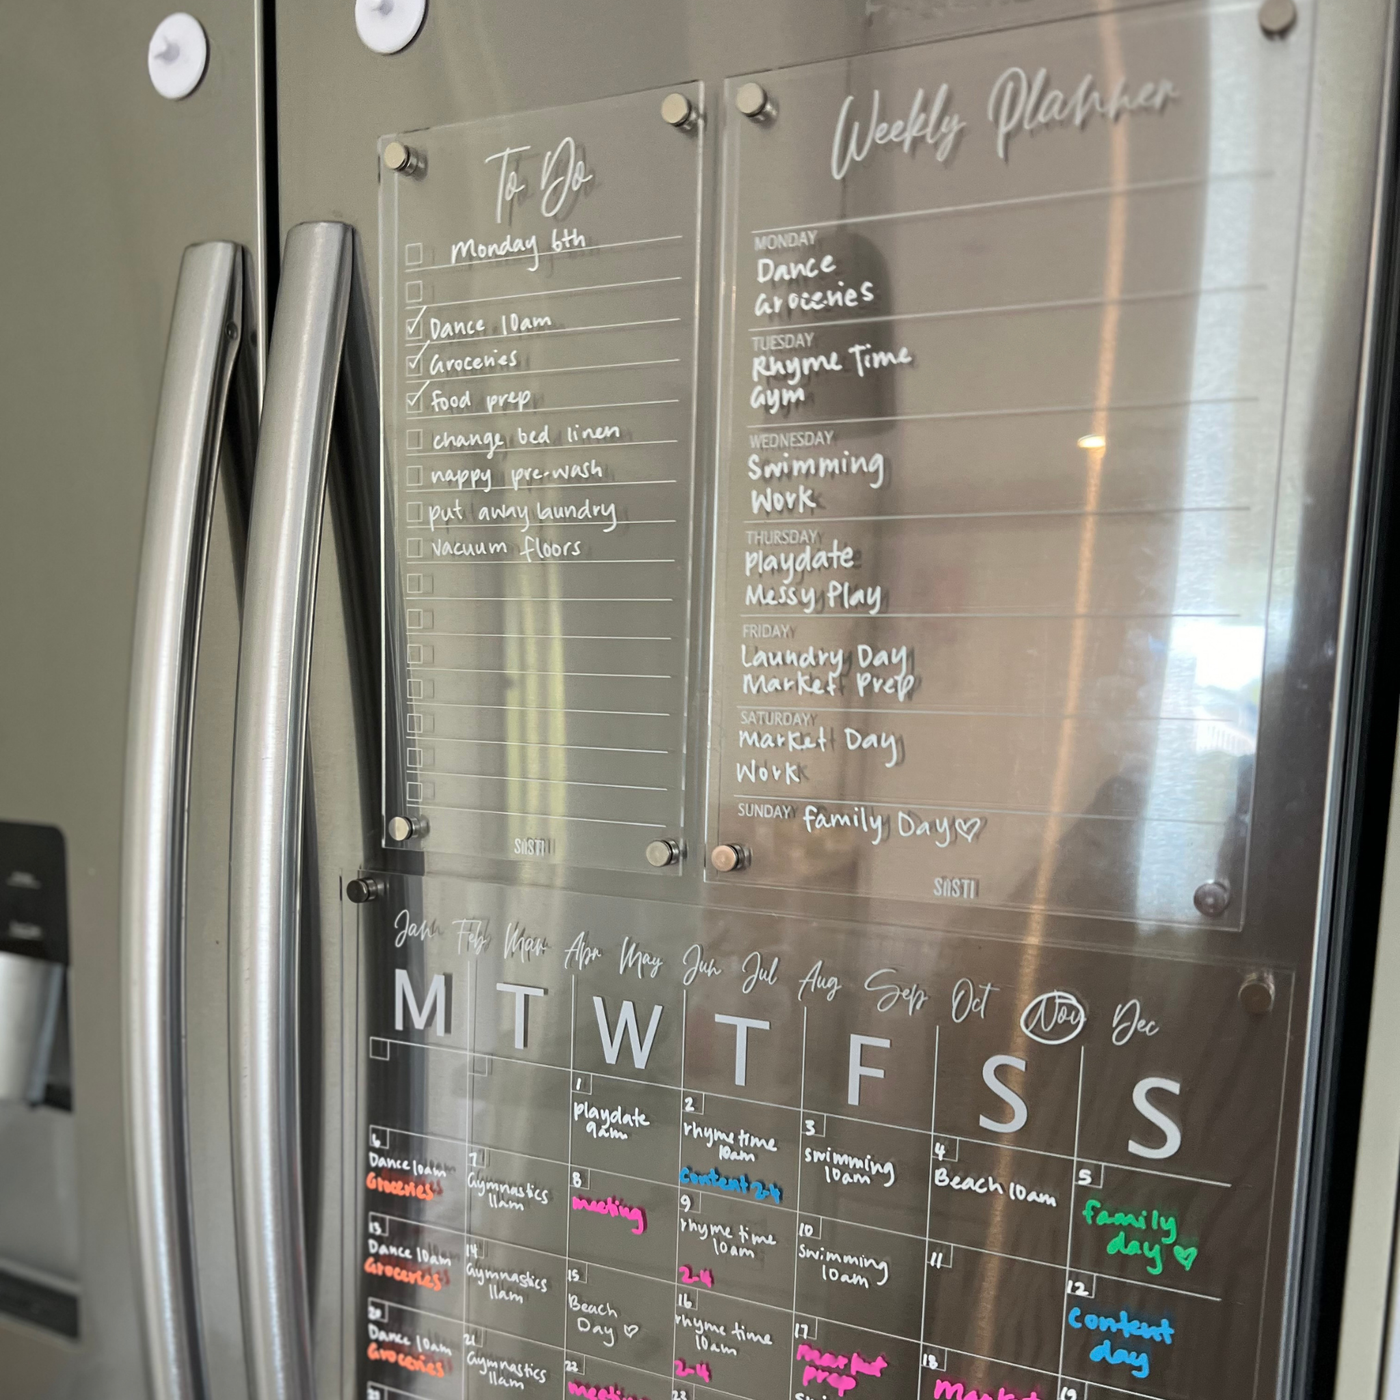 To Do
Monday 6th
Dance 10am
Groceries
food prep
change bed linen
nappy pre-wash
put away laundry
vacuum floors
SiiSTI
Weekly Planner
MONDAY
Dance
Groceries
TUESDAY
Rhyme Time
Gym
WEDNESDAY
Swimming
Work
THURSDAY
playdate
Messy Play
FRIDAY
Laundry Day
Market Prep
SATURDAY
Market Day
Work
SUNDAY family Day♡
SiiSTI
Jan Feb Mar Apr May Jun Jul Aug Sep Oct Nov Dec
M T W T F S S
1
playdate
9am
2
rhyme time
10am
Content 2-4
3
swimming
10am
4
Beach 10am
5
family
day ♡
6
Dance 10am
Groceries
7
Gymnastics
11am
8
meeting
9
rhyme time
10am
2-4
10
Swimming
10am
11
12
Content
day
13
Dance 10am
Groceries
14
Gymnastics
11am
15
Beach
Day ♡
16
rhyme time
10am
2-4
17
market
prep
18
Market
19
20
Dance 10am
Groceries
21
Gymnastics
11am
22
meeting
23